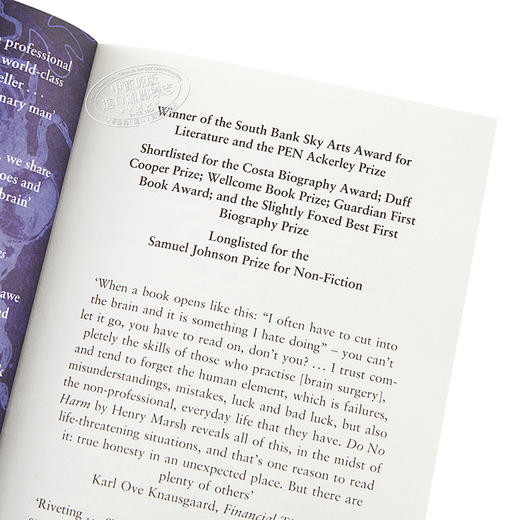 professional
world-class
eller ...
nary man'
we share
oes and
brain'
awe
nd
中商原版
进口通图书杂志
Winner of the South Bank Sky Arts Award for
Literature and the PEN Ackerley Prize
Shortlisted for the Costa Biography Award; Duff
Cooper Prize; Wellcome Book Prize; Guardian First
Book Award; and the Slightly Foxed Best First
Biography Prize
Longlisted for the
Samuel Johnson Prize for Non-Fiction
'When a book opens like this: "I often have to cut into
the brain and it is something I hate doing" – you can't
let it go, you have to read on, don't you? ... I trust com-
pletely the skills of those who practise [brain surgery],
and tend to forget the human element, which is failures,
misunderstandings, mistakes, luck and bad luck, but also
the non-professional, everyday life that they have. Do No
Harm by Henry Marsh reveals all of this, in the midst of
life-threatening situations, and that's one reason to read
it: true honesty in an unexpected place. But there are
plenty of others'
Karl Ove Knausgaard, Financial
'Riveting